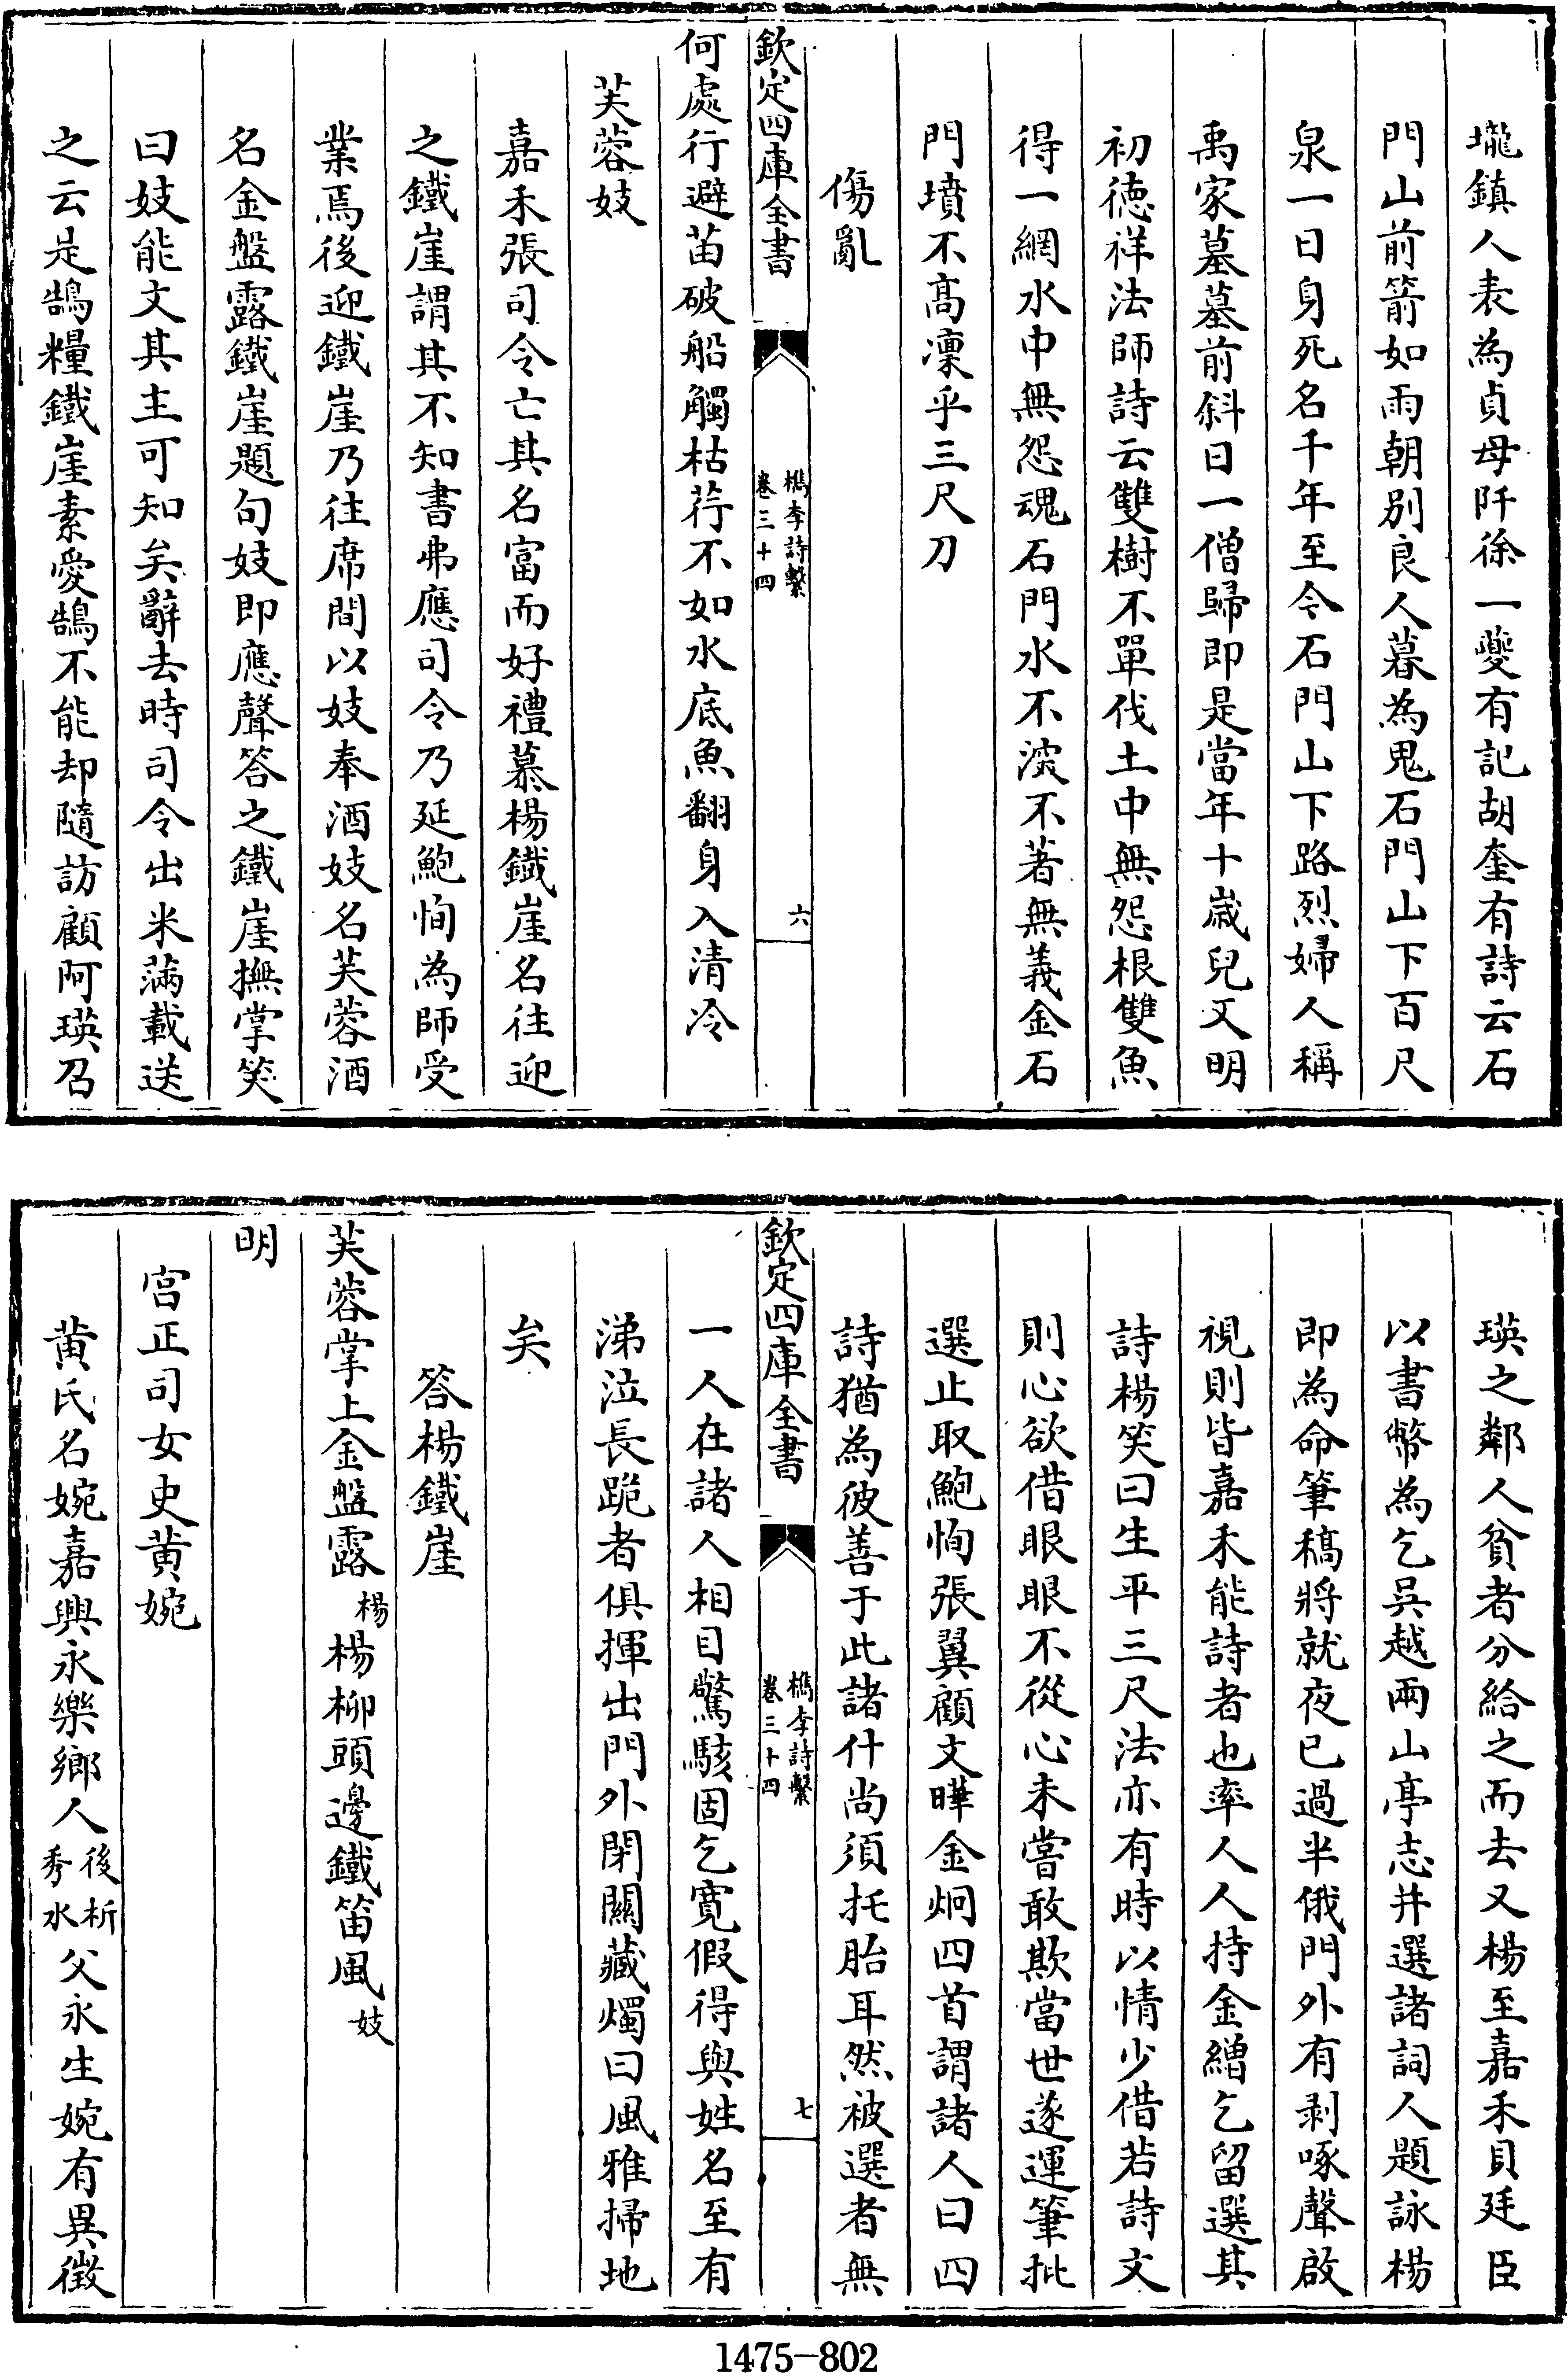 壠鎮人表為貞母阡徐一夔有記胡奎有詩云石
門山前箭如雨朝别良人暮為鬼石門山下百尺
泉一日身死名千年至今石門山下路烈婦人稱
禹家墓墓前斜日一僧歸即是當年十歲兒又明
初徳祥法師詩云雙樹不單伐土中無怨根雙魚
得一網水中無怨魂石門水不深不著無義金石
門墳不高凜乎三尺刀
傷亂
欽定四庫全書
檇李詩繫
卷三十四
六
何處行避苗破船觸枯荇不如水底魚翻身入清冷
芙蓉妓
嘉禾張司令亡其名富而好禮慕楊鐵崖名往迎
之鐵崖謂其不知書弗應司令乃延鮑恂為師受
業焉後迎鐵崖乃往席間以妓奉酒妓名芙蓉酒
名金盤露鐵崖題句妓即應聲答之鐵崖撫掌笑
曰妓能文其主可知矣辭去時司令出米滿載送
之云是鵠糧鐵崖素愛鵠不能却隨訪顧阿瑛召
瑛之鄰人貧者分給之而去又楊至嘉禾貝廷臣
以書幣為乞吳越兩山亭志并選諸詞人題詠楊
即為命筆稿將就夜已過半俄門外有剥啄聲啟
視則皆嘉禾能詩者也率人人持金繒乞留選其
詩楊笑曰生平三尺法亦有時以情少借若詩文
則心欲借眼眼不從心未嘗敢欺當世遂運筆批
選止取鮑恂張翼顧文曄金炯四首謂諸人曰四
詩猶為彼善于此諸什尚須托胎耳然被選者無
欽定四庫全書
檇李詩繫
卷三十四
七
一人在諸人相目驚駭固乞寛假得與姓名至有
涕泣長跪者俱揮出門外閉關藏燭曰風雅掃地
矣
答楊鐵崖
芙蓉掌上金盤露楊楊柳頭邊鐵笛風妓
明
宫正司女史黄婉
黄氏名婉嘉興永樂鄉人後析秀水父永生婉有異徵
1475-802